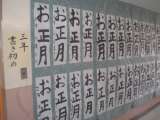 三年
書き初め
お正月
お正月
お正月
お正月
お正月
お正月
お正月
お正月
お正月
お正月
お正月
お正月
お正月
お正月